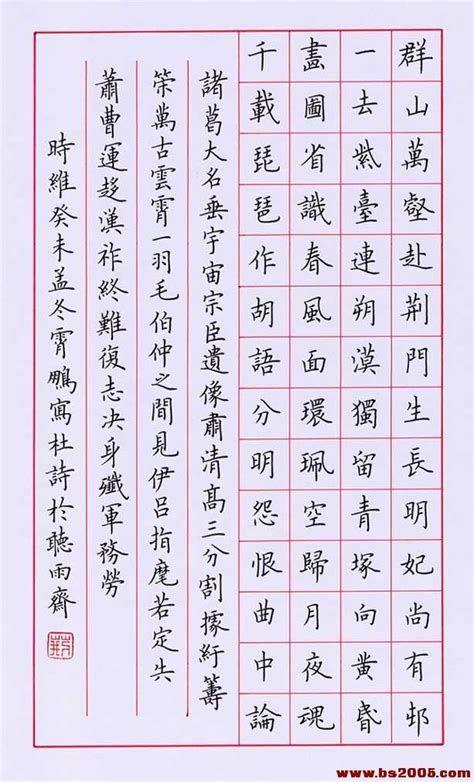 群山萬壑赴荆門生長明妃尚有邨
一去紫臺連朔漠獨留青塚向黄昏
畫圖省識春風面環珮空歸月夜魂
千載琵琶作胡語分明怨恨曲中論
諸葛大名垂宇宙宗臣遺像肅清髙三分割據紆籌
筞萬古雲霄一羽毛伯仲之間見伊吕指麾若定失
蕭曹運趍漢祚終難復志决身殲軍務勞
時維癸未孟冬霄鵬寫杜詩於聽雨齋
www.bs2005.com